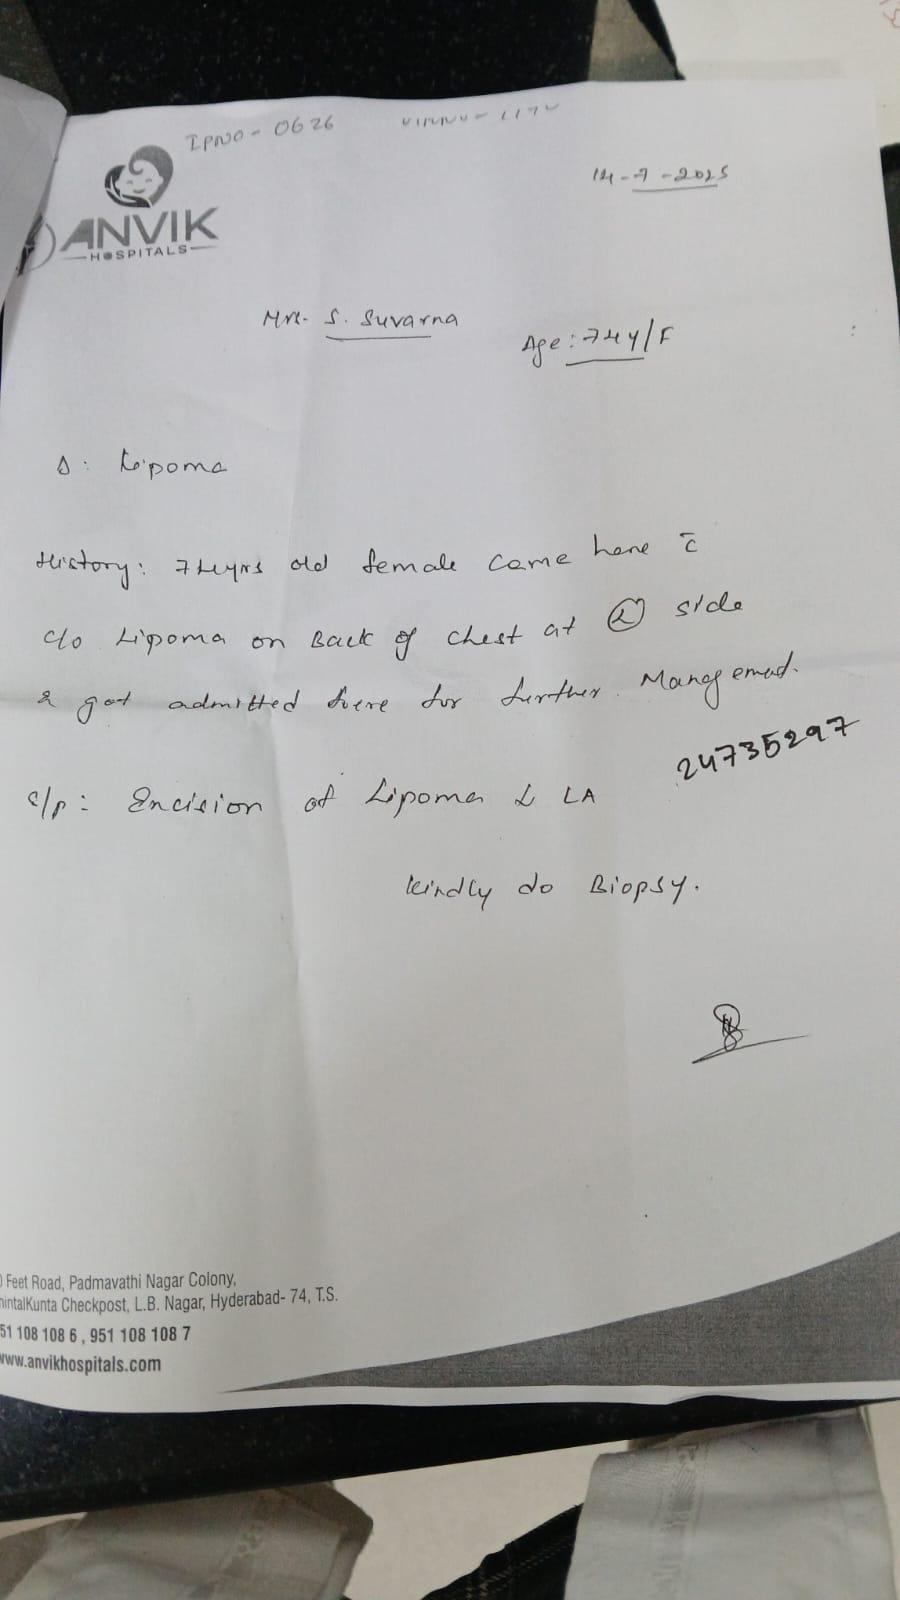 IPNO - 0626
14-7-2025
ANVIK
HOSPITALS
Mrs. S. Suvarna
Age: 74y/F
Δ: Lipoma
History: 74yrs old female came here c̄
c/o Lipoma on Back of chest at side
& got admitted here for further Management.
24735297
s/p: Encision of Lipoma LA
kindly do Biopsy.
Feet Road, Padmavathi Nagar Colony,
hintalKunta Checkpost, L.B. Nagar, Hyderabad- 74, T.S.
51 108 108 6, 951 108 108 7
www.anvikhospitals.com